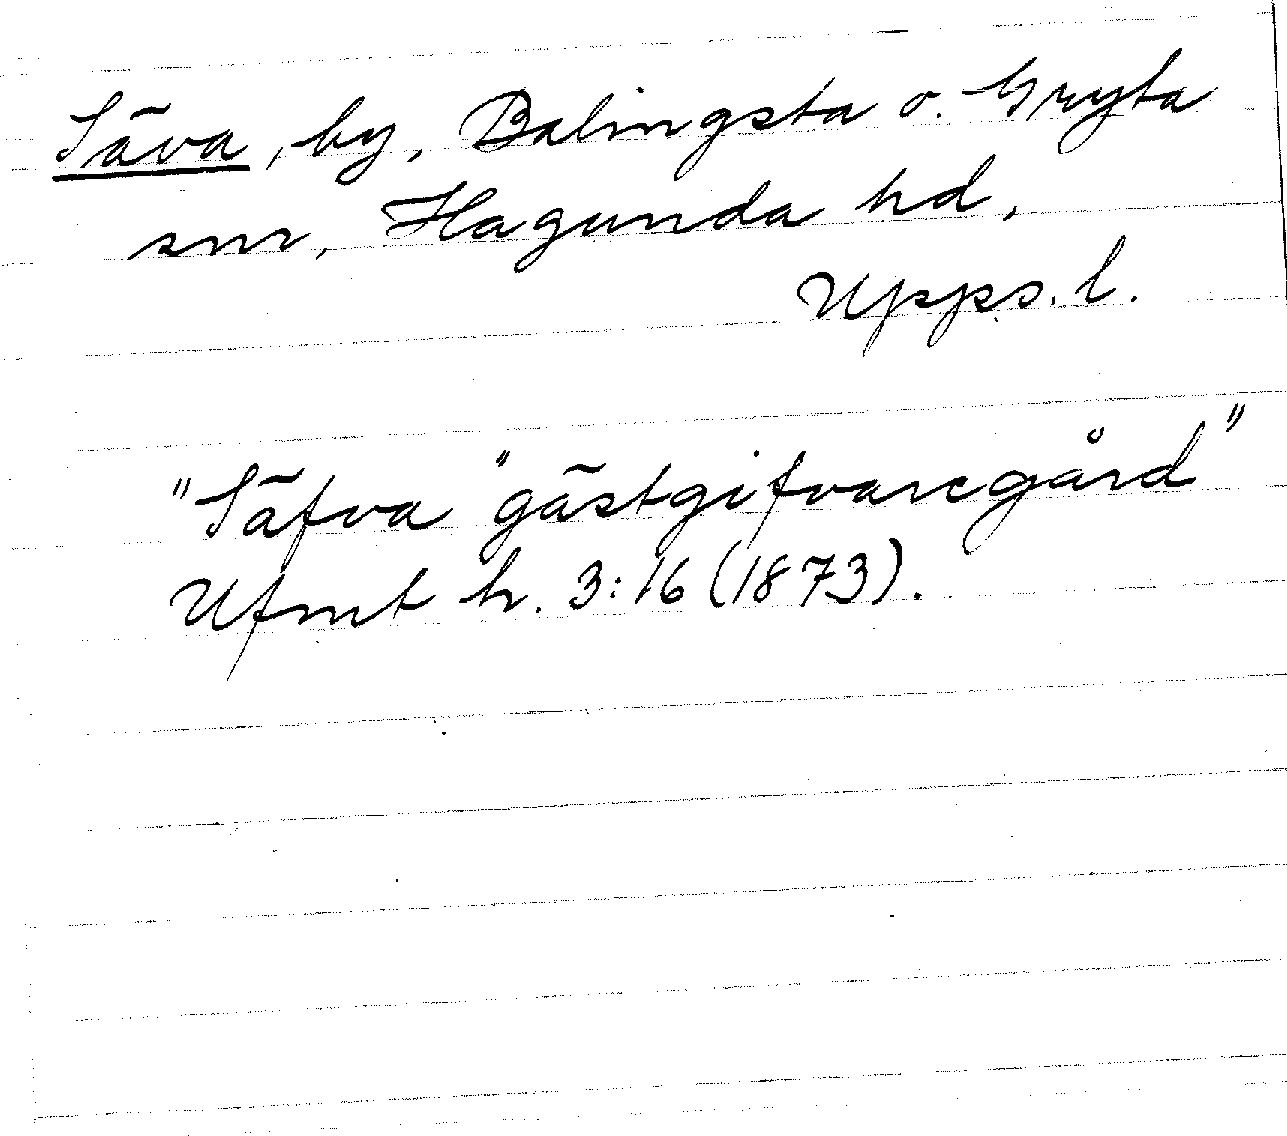 Säva, by, Balingsta o. Gryta
snr, Hagunda hd,
Upps. l.
"Säfva "gästgifvaregård"
Ufmt h. 3:16 (1873).